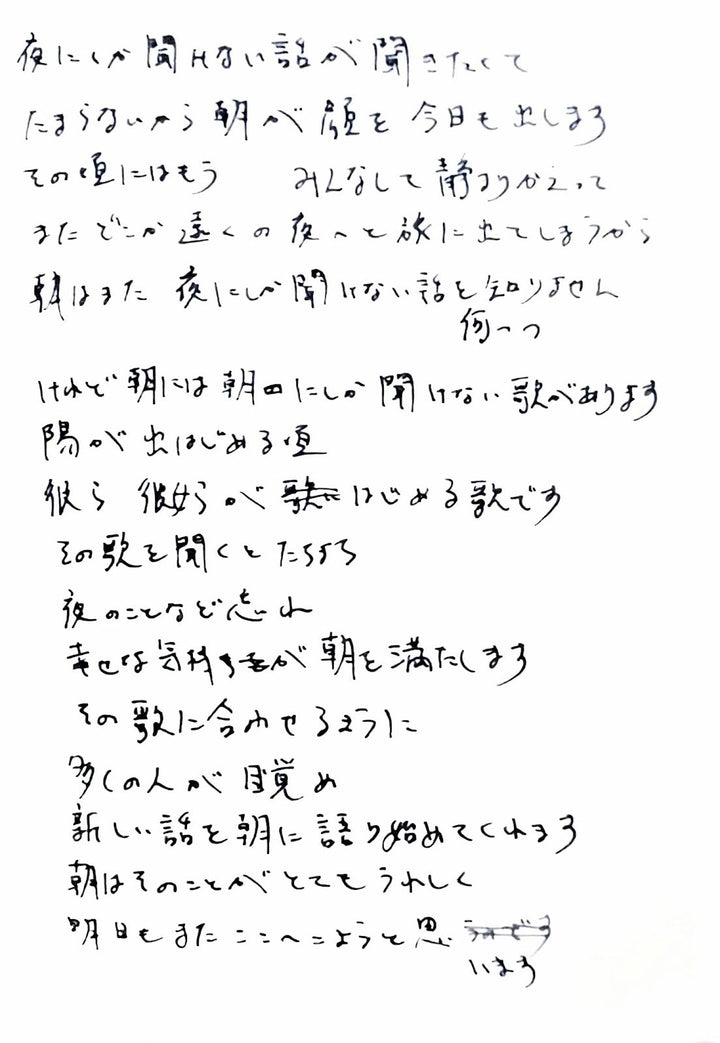 夜にしか聞けない話が聞きたくて
たまらないから朝が顔を今日も出します
その頃にはもう　みんなして静まりかえって
またどこか遠くの夜へと旅に出てしまうから
朝はまだ夜にしか聞けない話を知りません
何一つ
けれど朝には朝にしか聞けない歌があります
陽が出はじめる頃
彼ら彼女らがはじめる歌です
その歌を聞くとたちまち
夜のことなど忘れ
幸せな気持ちが朝を満たします
その歌に合わせるように
多くの人が目覚め
新しい話を朝に語り始めてくれます
朝はそのことがとてもうれしく
明日もまたここへこようと思
います